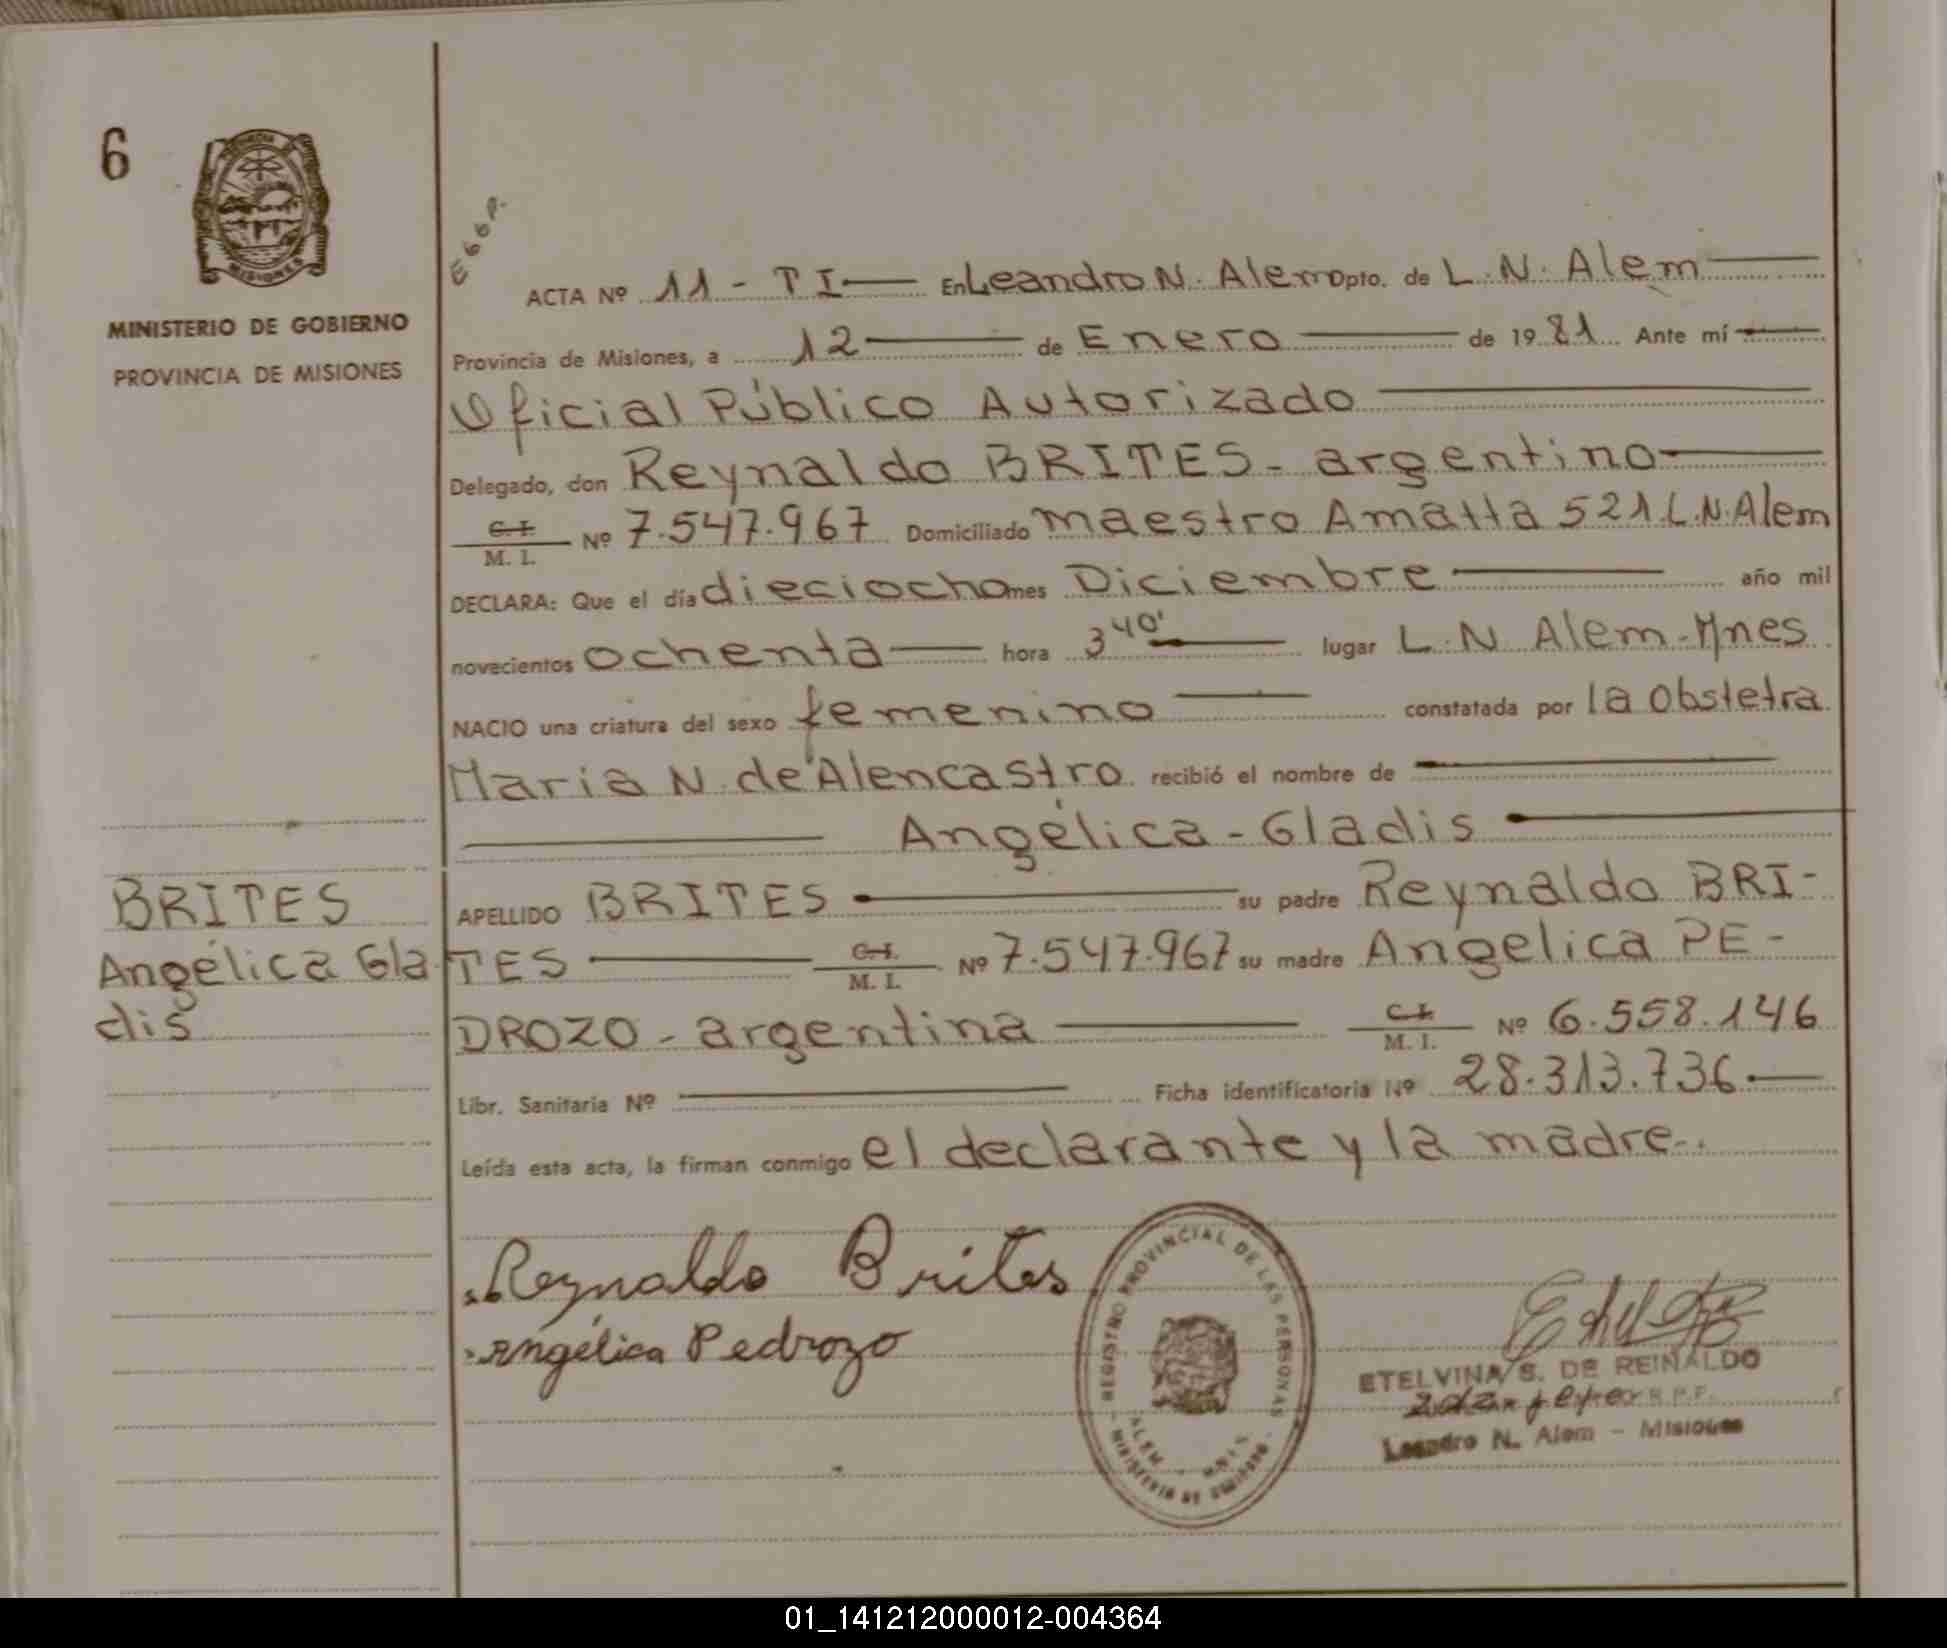 6
MINISTERIO DE GOBIERNO
PROVINCIA DE MISIONES
ACTA Nº 11 - T I — En Leandro N. Alem Dpto. de L. N. Alem
Provincia de Misiones, a 12 — de Enero — de 1981 Ante mí —
Oficial Público Autorizado
Delegado, don Reynaldo BRITES - argentino
C.I. M. I. Nº 7.547.967 Domiciliado Maestro Amatta 521 L.N. Alem
DECLARA: Que el día dieciocho mes Diciembre — año mil
novecientos ochenta — hora 3 40' — lugar L. N Alem - Mnes
NACIO una criatura del sexo femenino — constatada por la Obstetra
Maria N. de Alencastro recibió el nombre de —
— Angélica - Gladis —
BRITES
Angélica Gla
dis
APELLIDO BRITES — su padre Reynaldo BRI-
TES — C.I. M. I. Nº 7.547.967 su madre Angelica PE-
DROZO - argentina — C.I. M. I. Nº 6.558.146
Libr. Sanitaria Nº — Ficha identificatoria Nº 28.313.736.—
Leída esta acta, la firman conmigo el declarante y la madre-.
Reynaldo Brites
Angélica Pedrozo
REGISTRO PROVINCIAL DE LAS PERSONAS
ALEM - MNES
MINISTERIO DE GOBIERNO
MISIONES
ETELVINA S. DE REINALDO
R.P.P.
Leandro N. Alem - Misiones
01_141212000012-004364